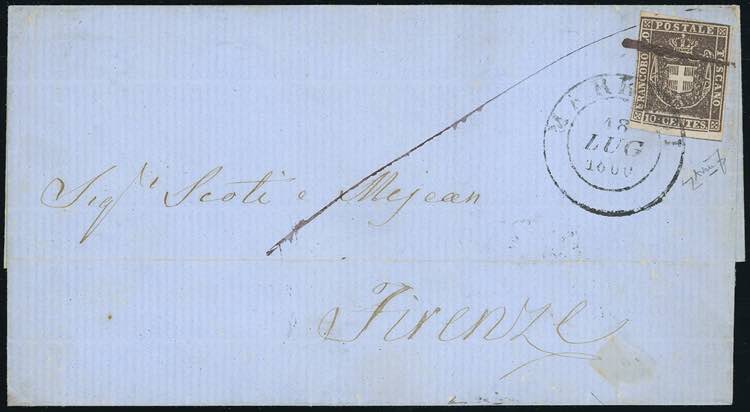 FRANCOBOLLO POSTALE TOSCANO
10 CENTES
18
LUG
Sig.ri Scoti e Mejean
Firenze